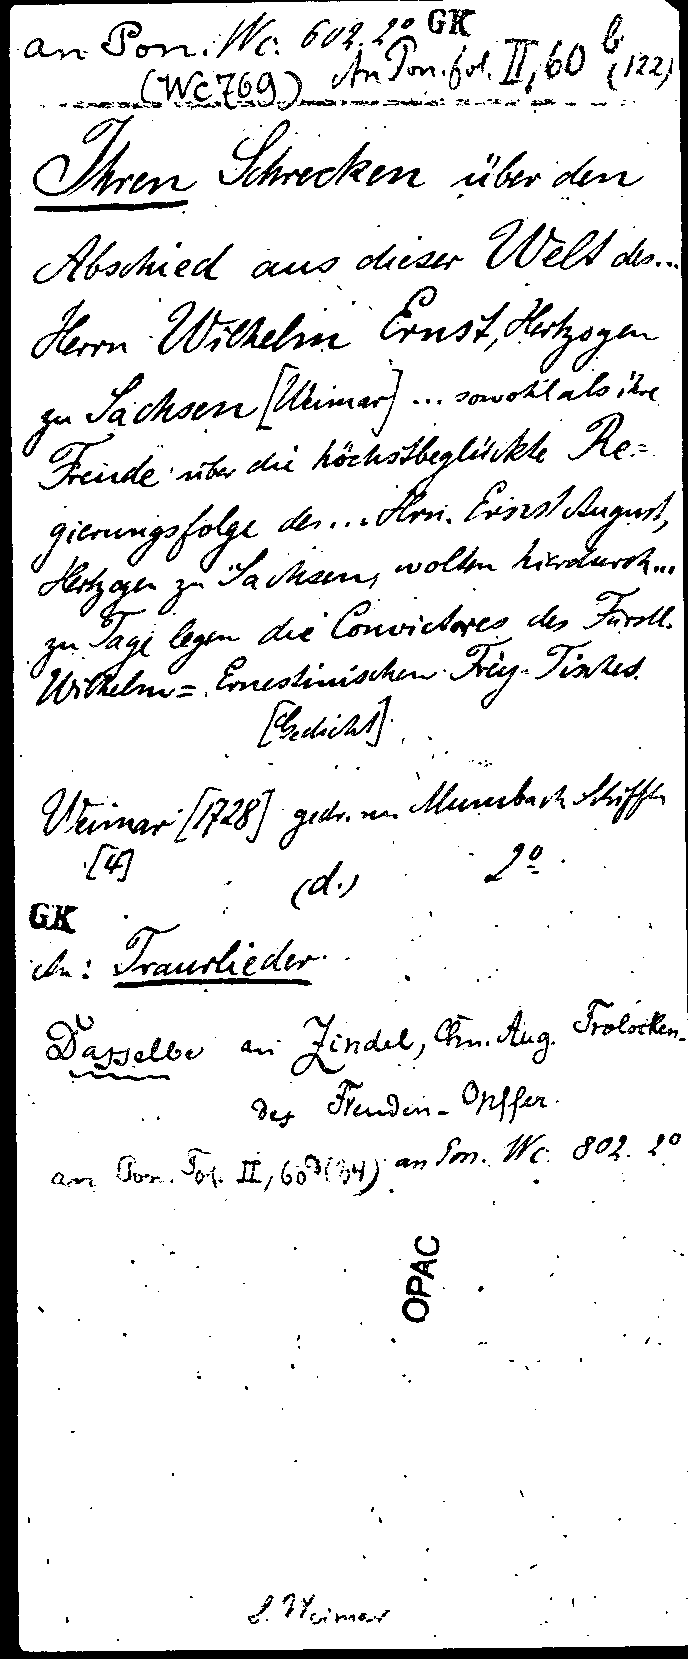 an Pon. Wc. 602. 2° GK
(Wc 769) An Pon. fol. II, 60 b (122)
Ihren Schrecken über den
Abschied aus dieser Welt des...
Herrn Wilhelm Ernst, Hertzogen
zu Sachsen [Weimar] ... sowohl als ihre
Freude über die höchstbeglückte Re=
gierungsfolge des... Hrn. Ernst August,
Hertzogen zu Sachsen, wolten hierdurch...
zu Tage legen die Convictores des Fürstl.
Wilhelm= Ernestinischen Frey-Tisches.
[Gedicht].
Weimar [1728] gedr. von Mumbach Schrifften
[4] (d.) 2°
GK
An: Traurlieder.
Dasselbe an Zindel, Chn. Aug. Frolocken-
des Freuden-Opffer.
an Pon. Fol. II, 60 an Pon. Wc. 802. 2°
OPAC
S. Weimar